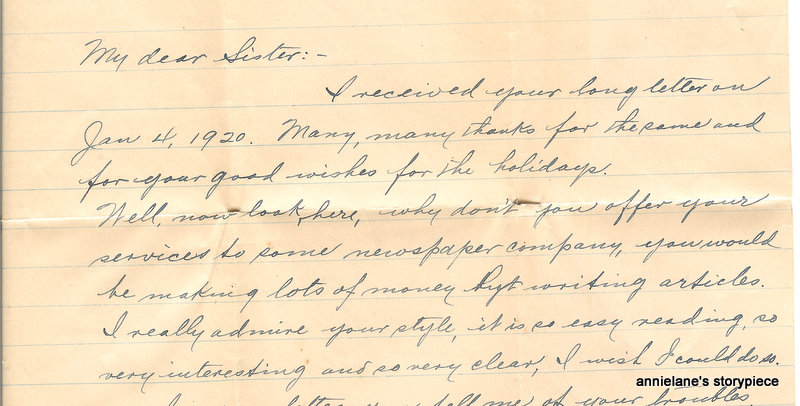 My dear Sister:-
I received your long letter on
Jan 4, 1920. Many, many thanks for the same and
for your good wishes for the holidays.
Well, now look, here, why don't you offer your
services to some newspaper company, you would
be making lots of money by writing articles.
I really admire your style, it is so easy reading, so
very interesting and so very clear, I wish I could do so.
letter you tell me of your troubles,
annielane's storypiece